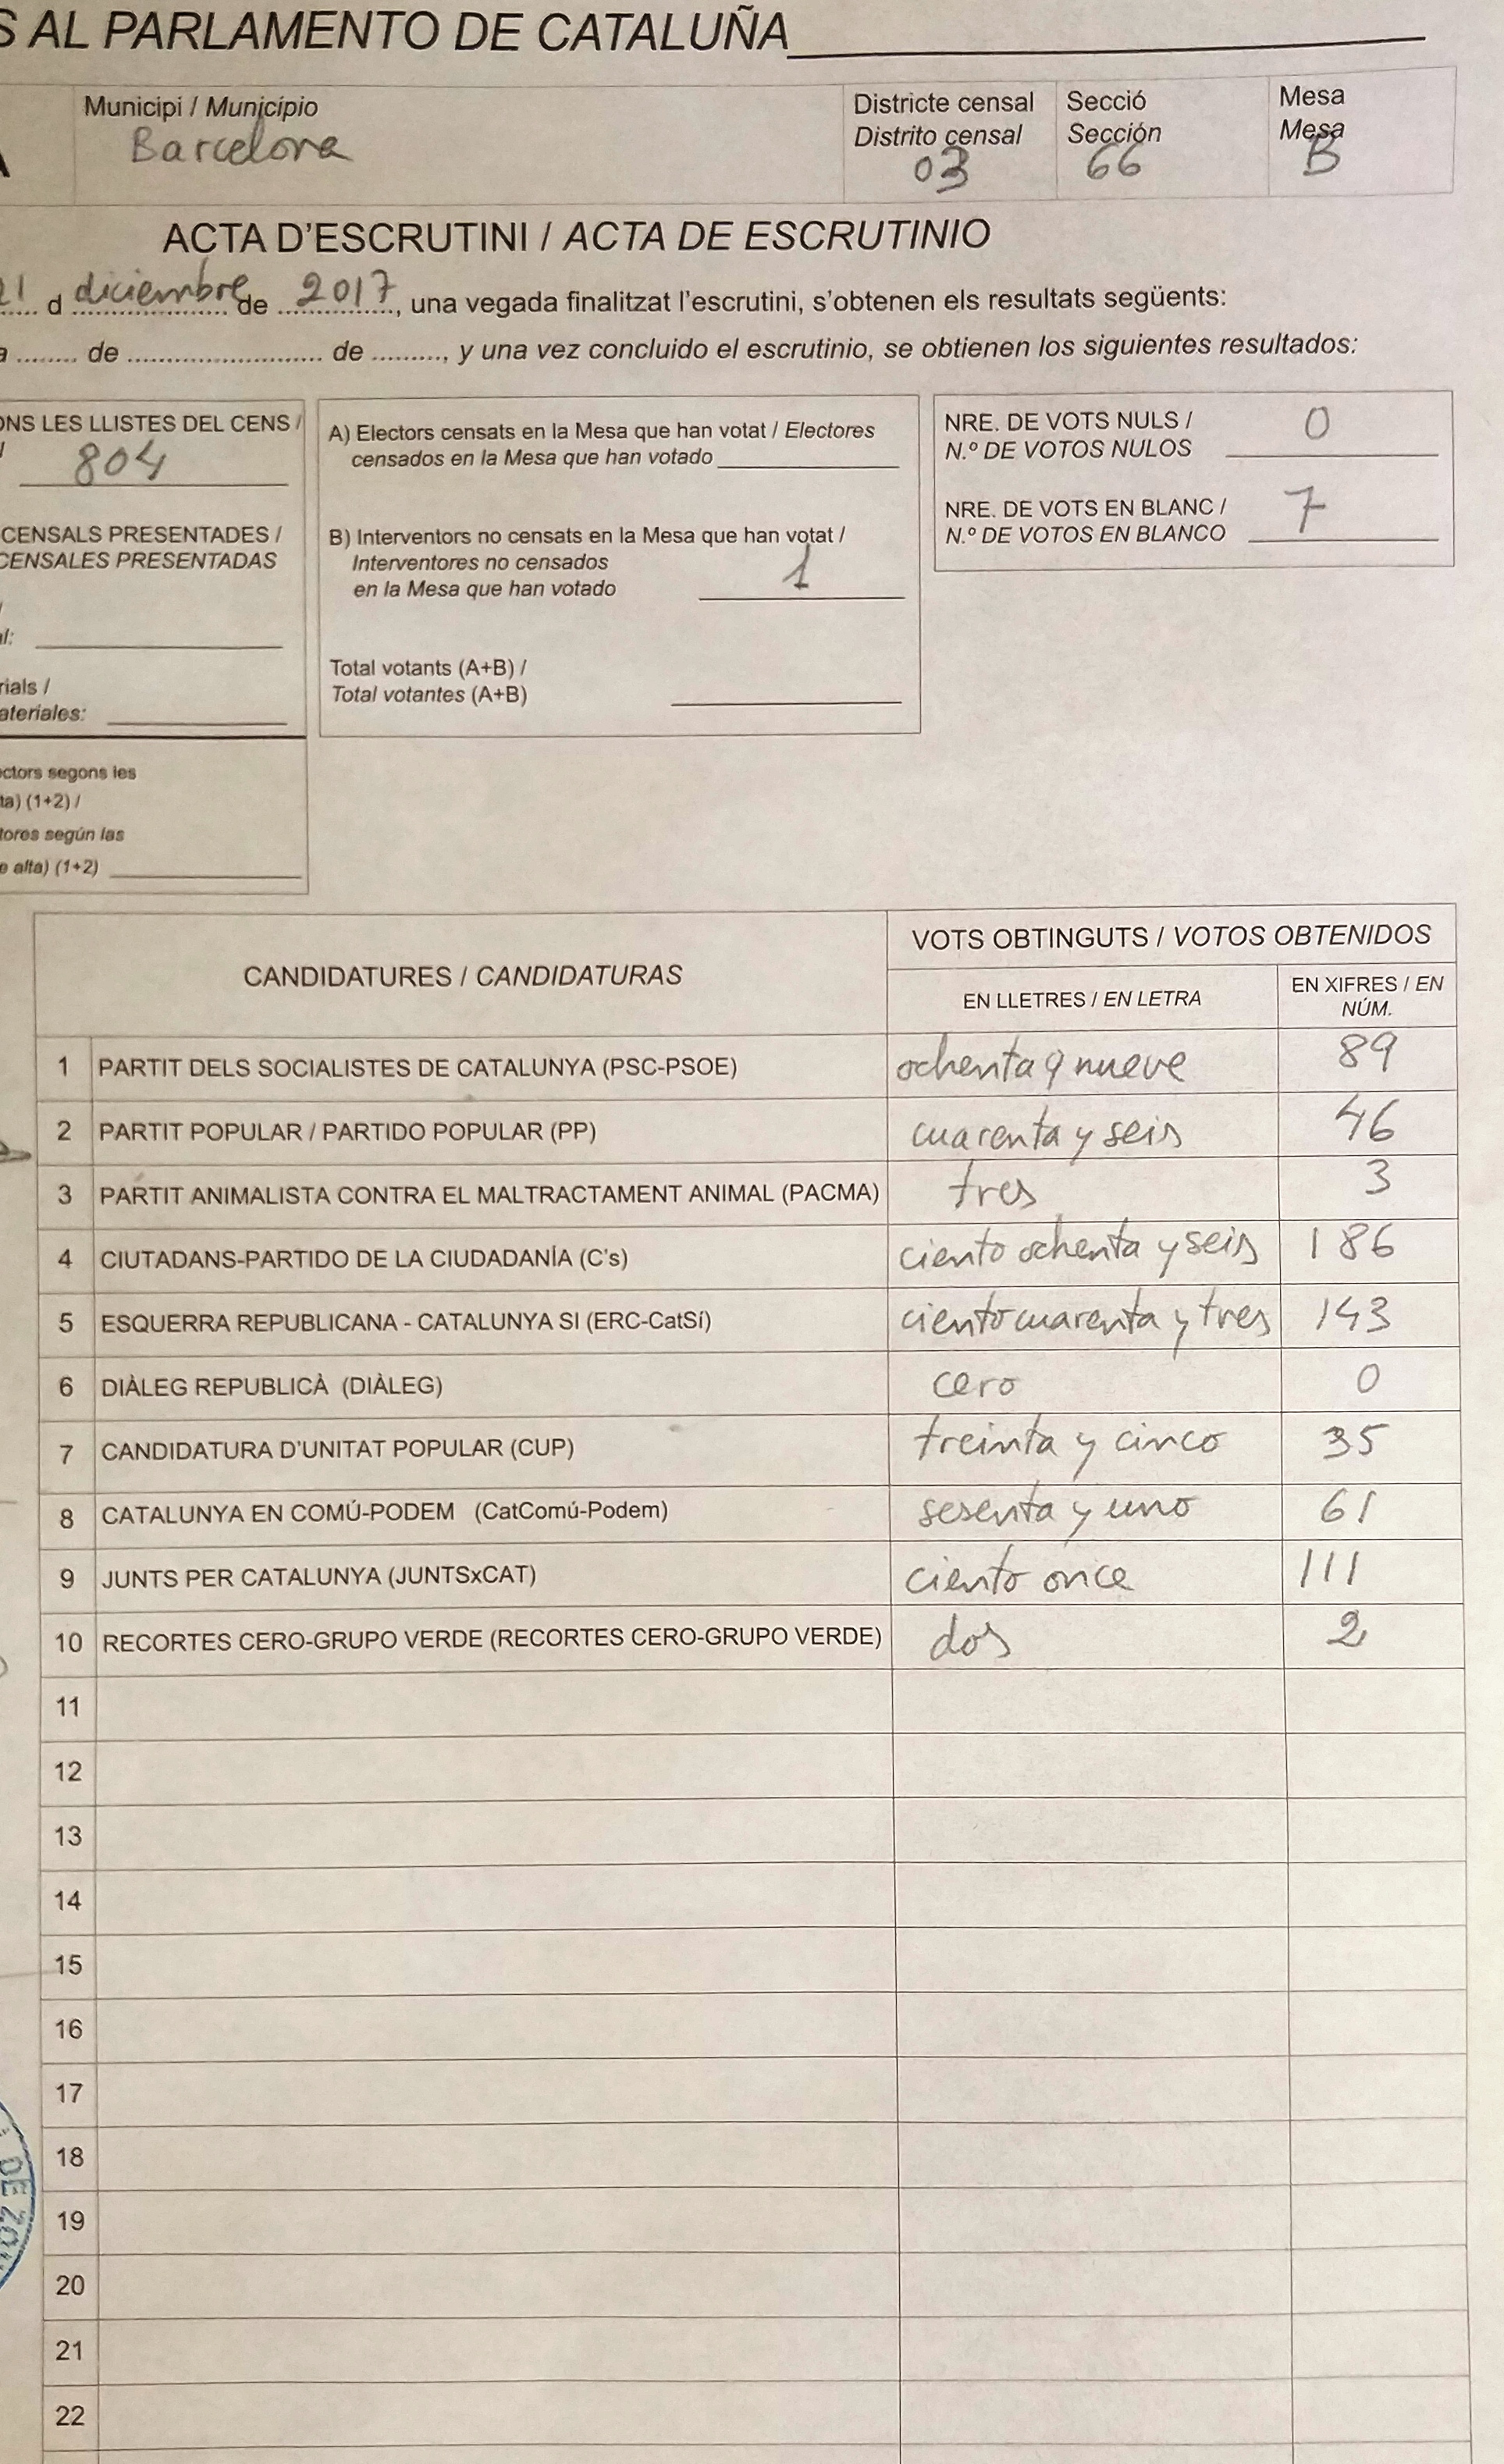 S AL PARLAMENTO DE CATALUÑA
Municipi / Municipio
Barcelona
Districte censal
Distrito censal
03
Secció
Sección
66
Mesa
Mesa
B
ACTA D'ESCRUTINI / ACTA DE ESCRUTINIO
21 d diciembre de 2017, una vegada finalitzat l'escrutini, s'obtenen els resultats següents:
a ........ de ........................ de ........., y una vez concluido el escrutinio, se obtienen los siguientes resultados:
ONS LES LLISTES DEL CENS /
804
CENSALS PRESENTADES /
CENSALES PRESENTADAS
l:
rials /
ateriales:
ectors segons les
ta) (1+2) /
tores según las
e alta) (1+2)
A) Electors censats en la Mesa que han votat / Electores
censados en la Mesa que han votado
B) Interventors no censats en la Mesa que han votat /
Interventores no censados
en la Mesa que han votado 1
Total votants (A+B) /
Total votantes (A+B)
NRE. DE VOTS NULS /
N.º DE VOTOS NULOS 0
NRE. DE VOTS EN BLANC /
N.º DE VOTOS EN BLANCO 7
CANDIDATURES / CANDIDATURAS
VOTS OBTINGUTS / VOTOS OBTENIDOS
EN LLETRES / EN LETRA
EN XIFRES / EN
NÚM.
1 PARTIT DELS SOCIALISTES DE CATALUNYA (PSC-PSOE) ochenta y nueve 89
2 PARTIT POPULAR / PARTIDO POPULAR (PP) cuarenta y seis 46
3 PARTIT ANIMALISTA CONTRA EL MALTRACTAMENT ANIMAL (PACMA) tres 3
4 CIUTADANS-PARTIDO DE LA CIUDADANÍA (C's) ciento ochenta y seis 186
5 ESQUERRA REPUBLICANA - CATALUNYA SI (ERC-CatSí) ciento cuarenta y tres 143
6 DIÀLEG REPUBLICÀ (DIÀLEG) cero 0
7 CANDIDATURA D'UNITAT POPULAR (CUP) treinta y cinco 35
8 CATALUNYA EN COMÚ-PODEM (CatComú-Podem) sesenta y uno 61
9 JUNTS PER CATALUNYA (JUNTSxCAT) ciento once 111
10 RECORTES CERO-GRUPO VERDE (RECORTES CERO-GRUPO VERDE) dos 2
11
12
13
14
15
16
17
18
19
20
21
22
DE ZON